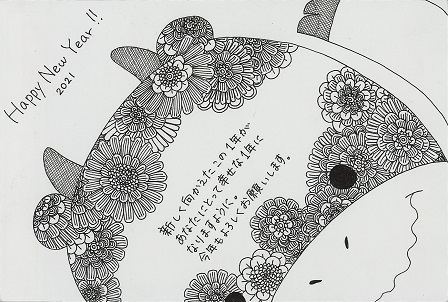 Happy New Year!!
2021
新しく向かえたこの1年が
あなたにとって幸せな1年に
なりますように。
今年もよろしくお願いします。